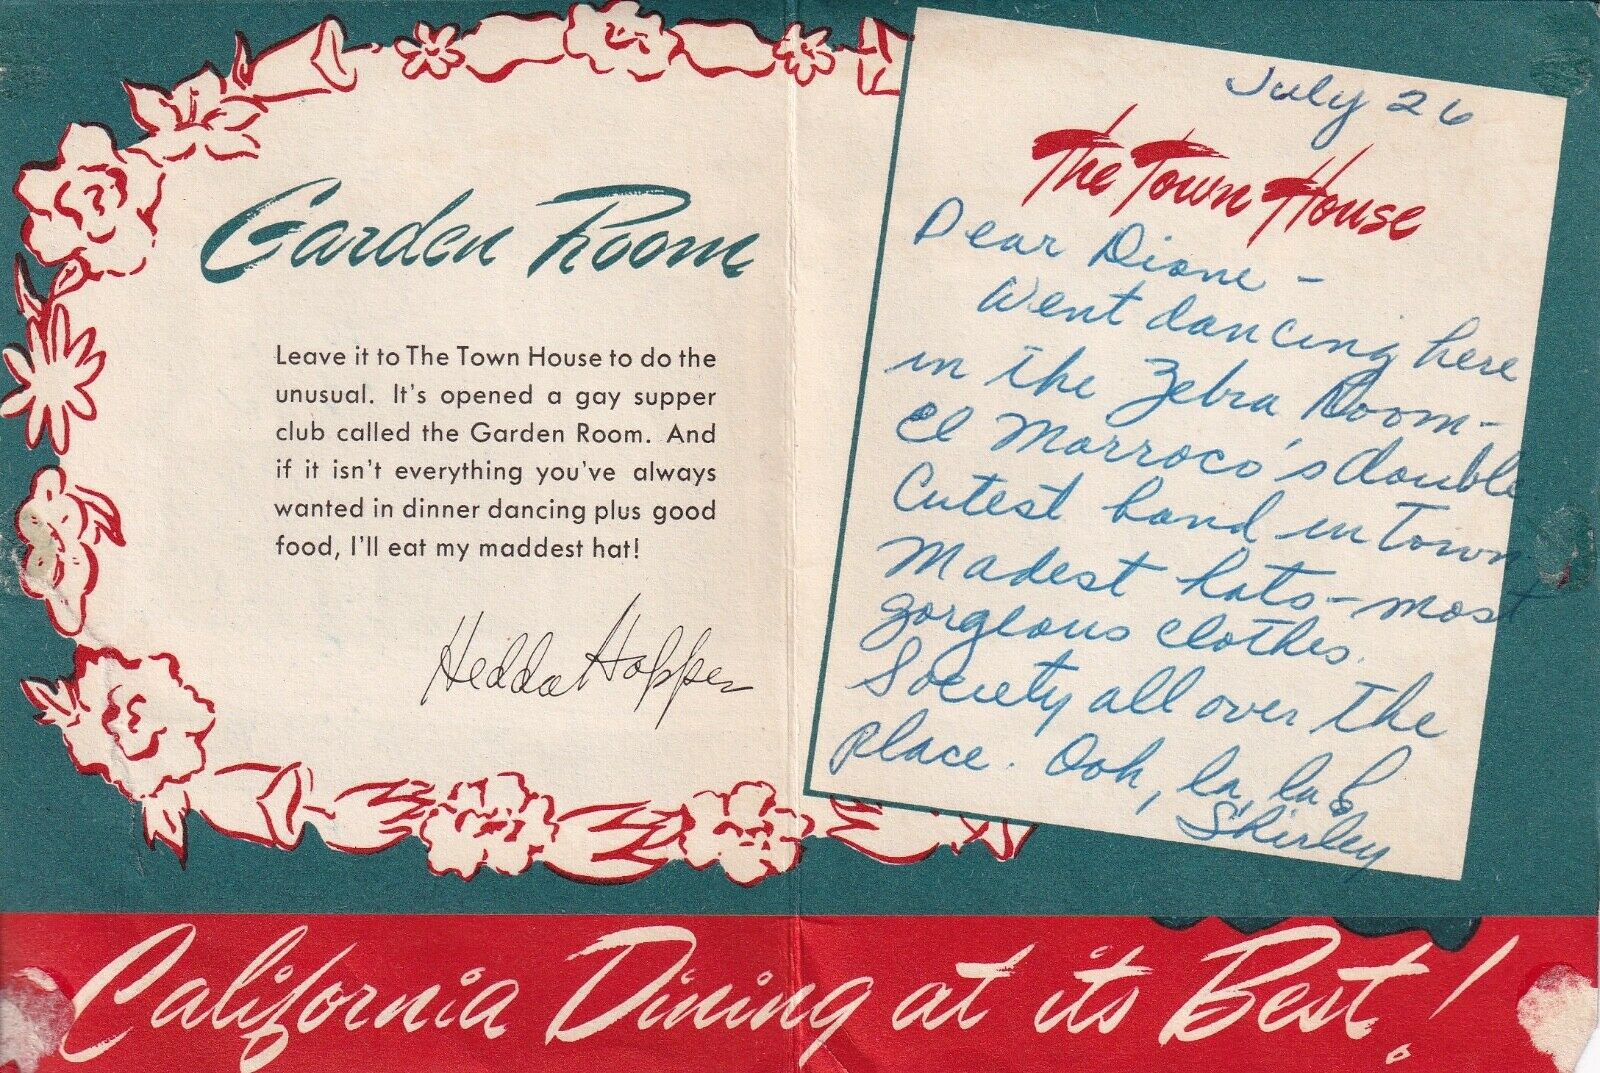 Garden Room
Leave it to The Town House to do the
unusual. It's opened a gay supper
club called the Garden Room. And
if it isn't everything you've always
wanted in dinner dancing plus good
food, I'll eat my maddest hat!
Hedda Hopper
July 26
The Town House
Dear Diane -
Went dancing here
in the Zebra Room-
El Morroco's double
Cutest band in town
Madest hats - most
gorgeous clothes.
Society all over the
place. Ooh, la la!
Shirley
California Dining at its Best!